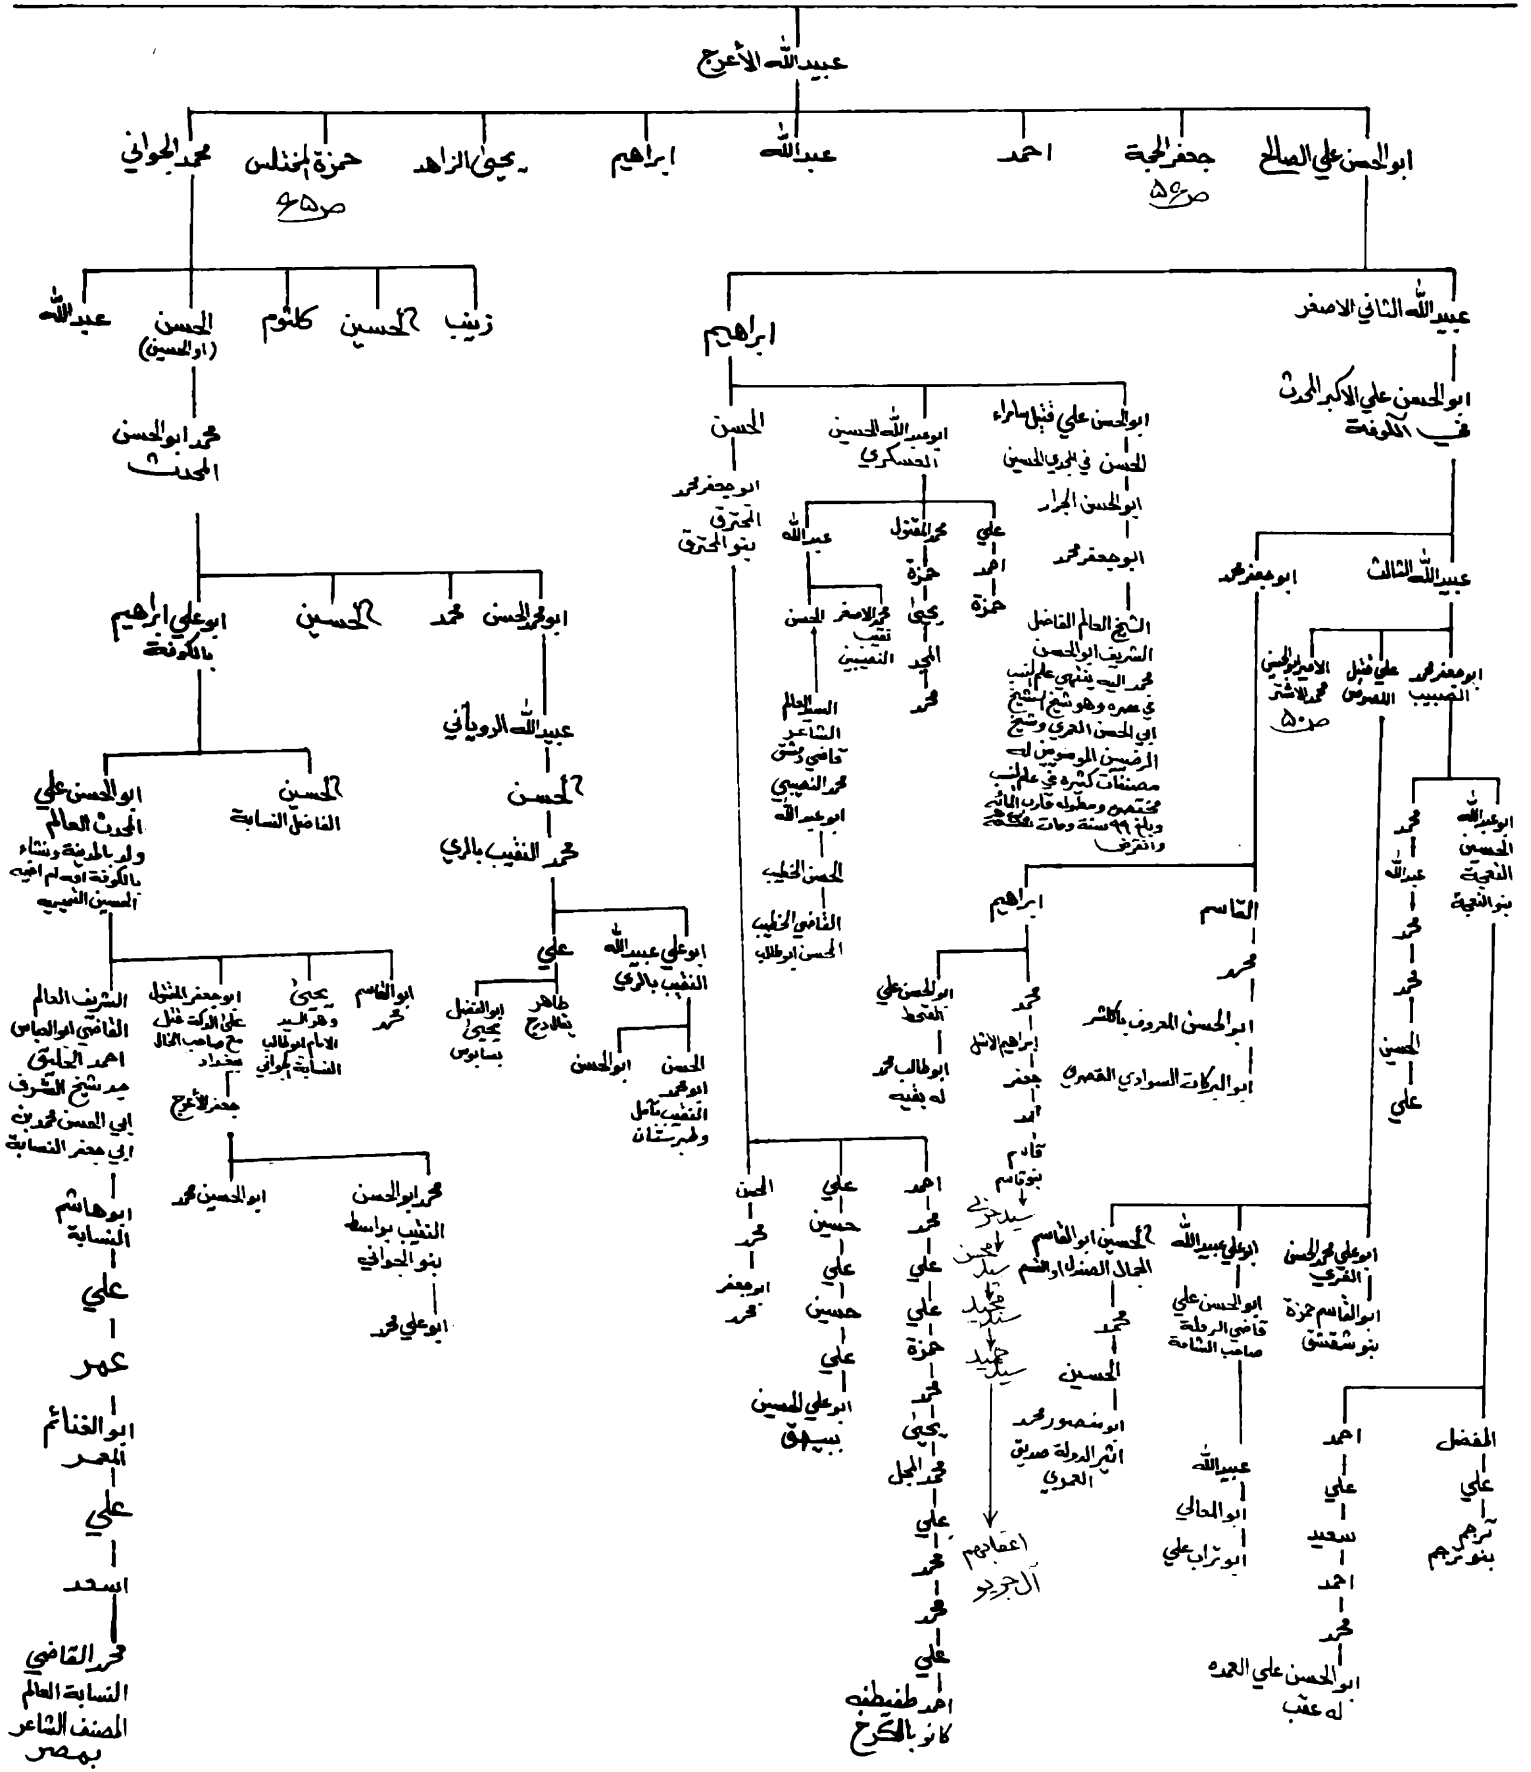 عبيدالله الأعرج
ابوالحسن علي الصالح
جعفرالحجة
ص٥٤
احمد
عبدالله
ابراهيم
يحيى الزاهد
حمزة المختلس
محمد الجواني
عبيدالله الثاني الاصغر
ابوالحسن علي الاكبر المحدث
في الكوفة
عبيدالله الثالث
ابوجعفرمحمد
ابوجعفرمحمد
الصبيب
علي قتيل
اللصوص
الاميرابوالحسن
محمدالاشتر
ص٥٠
ابوعبدالله
الحسين
النعجة
بنوالنعجة
محمد
عبدالله
محمد
محمد
الحسين
علي
المفضل
علي
ترجم
بنوترجم
احمد
علي
سعيد
احمد
محمد
ابوالحسن علي العمده
له عقب
ابوعلي محمدالحسن
الغري
ابوالقاسم حمزة
بنوشقشق
ابوعلي عبيدالله
ابوالحسن علي
قاضي الرملة
صاحب الشامة
عبيدالله
ابوالمعالي
ابوتراب علي
الحسين ابوالقاسم
الجمال الصندل اوالقسم
محمد
الحسين
ابومنصورمحمد
اثيرالدولة صديق
العموي
القاسم
محمد
ابوالحسن المعروف باكلشر
ابوالبركات السوادي القصري
ابراهيم
محمد
ابراهيم الاثل
جعفر
احمد
قاسم
بنوقاسم
محسن
سيد
مجيد
سيد
حميد
سيد
اعقابهم
آل جريو
ابوالحسن علي
القحط
ابوطالب محمد
له بقيه
ابراهيم
ابوالحسن علي قتيل سامراء
الحسن في المجدي الحسين
ابوالحسن الجزار
ابوجعفرمحمد
الشيخ العالم الفاضل
الشريف ابوالحسن
محمد اليه ينتهي علم النسب
في عصره وهو شيخ الشيخ
ابي الحسن العمري وشيخ
الرضيين الموسويين له
مصنفات كثيره في علم النسب
مختصر ومطوله قارب المائه
وبلغ ٩٩ سنة ومات
وانقرض
ابوعبدالله الحسين
العسكري
علي
احمد
حمزة
محمد المقتول
حمزة
يحيى
المجد
محمد
عبدالله
محمدالاصغر
نقيب
النصيبين
الحسن
السيد العالم
الشاعر
قاضي دمشق
محمد النصيبي
ابوعبدالله
الحسن الخطيب
القاضي الخطيب
الحسن ابوطالب
الحسن
ابوجعفرمحمد
المحترق
بنوالمحترق
احمد
محمد
علي
علي
حمزة
محمد
يحيى
محمد المجل
علي
محمد
محمد
علي
احمد طقيطقه
كانو بالكرخ
علي
حسين
علي
حسين
علي
ابوعلي الحسين
ببيهق
الحسن
محمد
ابوجعفر
محمد
زينب
الحسين
كلثوم
الحسن
(اوالحسين)
عبدالله
محمد ابوالحسن
المحدث
ابومحمد الحسن
محمد
الحسين
ابوعلي ابراهيم
بالكوفة
عبيدالله الروياني
الحسن
محمد النقيب بالري
ابوعلي عبيدالله
النقيب بالري
علي
الحسن
ابومحمد
النقيب بآمل
وطبرستان
ابوالحسن
طاهر
ابوالفضل
يحيى
بسابوس
الحسين
الفاضل النسابة
ابوالحسن علي
المحدث العالم
ولد بالمدينة ونشاء
بالكوفة
ابوالقاسم
محمد
يحيى
وهوالسيد
الامام ابوطالب
النسابة الجواني
ابوجعفر المقتول
على الدكة قتل
مع صاحب الخال
ببغداد
جعفرالأعرج
محمد ابوالحسن
النقيب بواسط
بنوالجواني
ابوعلي محمد
ابوالحسين محمد
الشريف العالم
القاضي ابوالعباس
احمد
جد شيخ الشرف
ابي الحسن محمد بن
ابي جعفر النسابة
ابوهاشم
النسابة
علي
عمر
ابوالغنائم
المعمر
علي
اسعد
محمد القاضي
النسابة العالم
المصنف الشاعر
بمصر